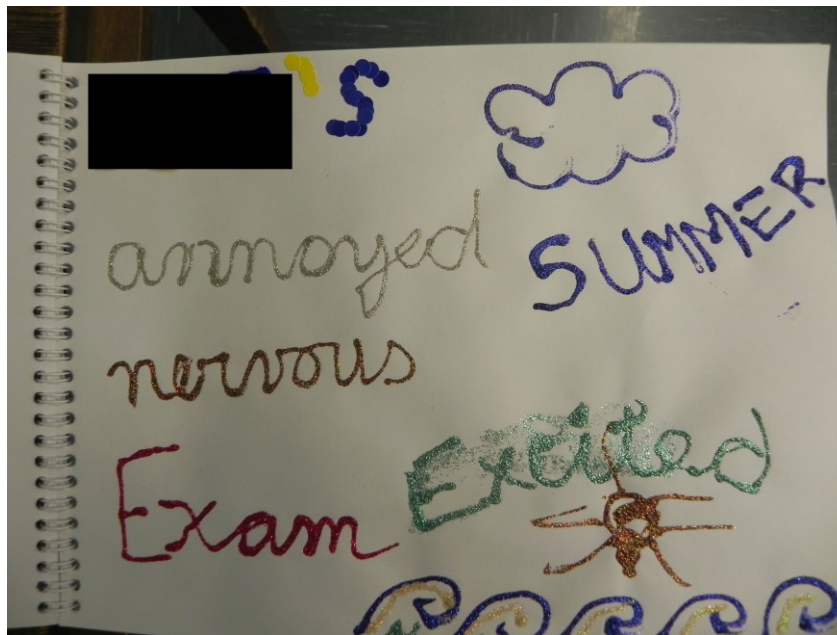 's
annoyed
SUMMER
nervous
Excited
Exam